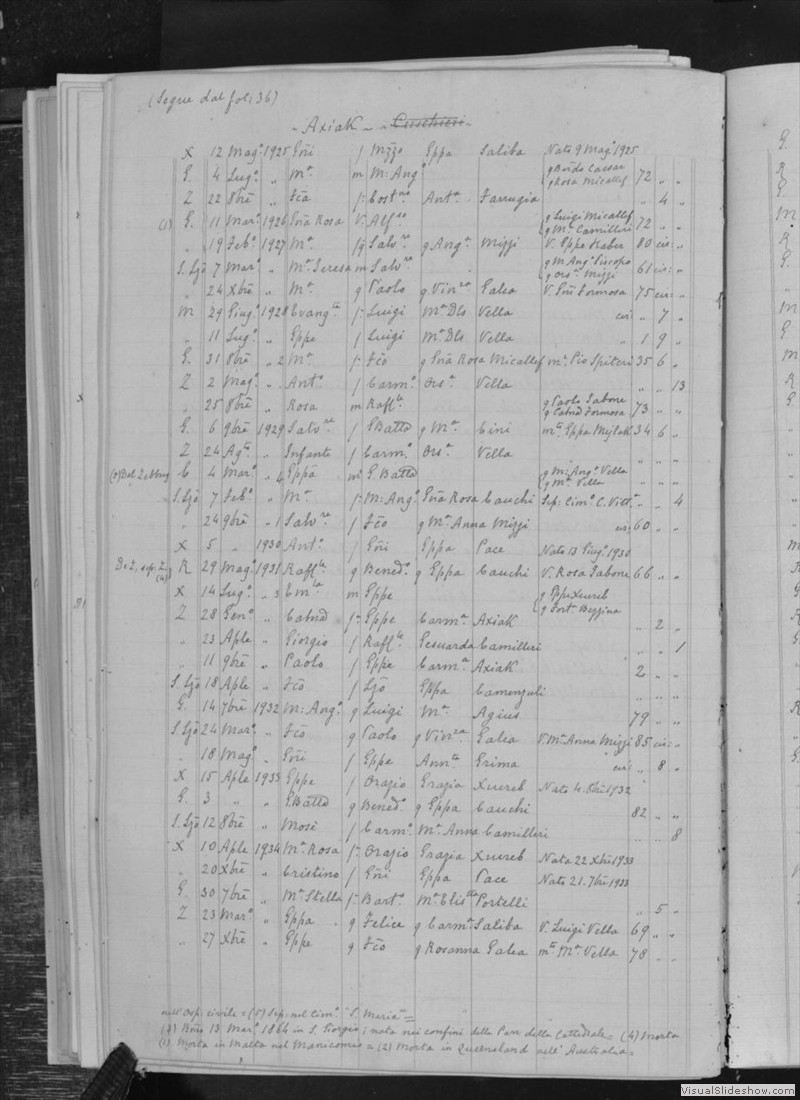 (Segue dal fol: 36)
- Axiak - - Cuschieri -
X 12 Magº 1925 Gñi f Mzzo Eppa Saliba Nato 9 Magº 1925
G. 4 Lugº „ Mª m M: Angº g Rosa Micallef 72 „ „
Z 22 8bre „ Fca f: Antª Farrugia „ 4 „
(1) G. 11 Marº 1926 Rosa V: g Luigi Micallef g Mª Camilleri 72 „ „
„ 19 Febº 1927 Mª g Salvre g Angª Mizzi V. Eppe 80 cir: „
S. Ljo 7 Marº „ Mª Teresa m Salvre g M: Angº Piscopo g Orsª Mizzi 61 cir: „
„ 24 Xbre „ Mª g Paolo g Vinza Galea V. Formosa 75 cir: „
M 29 Giugº 1928 Evangta f: Luigi Mª Dls Vella cir: „ 7 „
„ 11 Lugº „ Eppe f Luigi Mª Dls Vella „ 1 9 „
G. 31 8bre „ 2 Mª f: Fco g Rosa Micallef mª Pio Spiteri 35 6 „
Z 2 Magº „ Antº f Carmº Orsª Vella „ „ 13
„ 25 8bre „ Rosa m Raflle g Paolo Sabone Formosa 73 „ „
G. 6 9bre 1929 Salvre f GBatta g Mª Cini mta Eppa Mejlak 34 6 „
Z 24 Agto „ Infante f Carmº Orsª Vella „ „ „
C 4 Marº „ 4 Eppa m G. Batta g M: Angº Vella g Mª Vella „ „
S. Ljo 7 Febº „ Mª f: M: Angº Rosa Cauchi Sep: Cimº C. Vittª „ „ 4
„ 24 9bre „ 1 Salvre f Fco g Mª Anna Mizzi cir: 60 „ „
X 5 „ 1930 Antº f Gñi Eppa Pace Nato 13 Giugº 1930
(4) R 29 Magº 1931 Raflla g Benedº g Eppa Cauchi V. Rosa Sabone 66 „ „
X 14 Lugº „ 3 m Eppe g Eppe Xuereb g Fort. Bezzina
Z 28 Genº „ f: Eppe Carmª Axiak „ 2 „
„ 23 Aple „ Giorgio f Raflle Camilleri „ „ 1
„ 11 9bre „ Paolo f Eppe Carmª Axiak 2 „ „
S. Ljo 18 Aple „ Fco f Ljo Eppa Camenzuli „ „ „
G. 14 7bre 1932 M: Angº g Luigi Mª Agius 79 „ „
S. Ljo 24 Marº „ Fco g Paolo g Vinza Galea V. Mª Anna Mizzi 85 cir: „
„ 18 Magº „ Gñi f Eppe Annta Grima cir: „ 8 „
X 15 Aple 1933 Eppe f Orazio Grazia Xuereb Nato 4 8bre 1932
G. 3 „ „ GBatta g Benedº g Eppa Cauchi 82 „ „
S. Ljo 12 8bre „ Mosè f Carmº Mª Anna Camilleri „ „ 8
X 10 Aple 1934 Mª Rosa f: Orazio Grazia Xuereb Nata 22 Xbre 1933
„ 20 Xbre „ Cristino f Gñi Eppa Pace Nato 21. 7bre 1933
G. 30 7bre „ Mª Stella f: Bartº Mª Elistta Portelli „ 5 „
Z 23 Marº „ Eppa g Felice g Carmª Saliba V. Luigi Vella 69 „ „
„ 27 Xbre „ Eppe g Fco g Rosanna Galea mta Mª Vella 78 „ „
nell' Osp: civile = (5) Sep: nel Cimº S. Maria =
13 Marº 1864 in S. Giorgio; nata nei confini della Par: della Cattedrale = (4) Morta
(1) Morta in Malta nel Manicomio = (2) Morta in Queensland nell' Australia =
VisualSlideshow.com